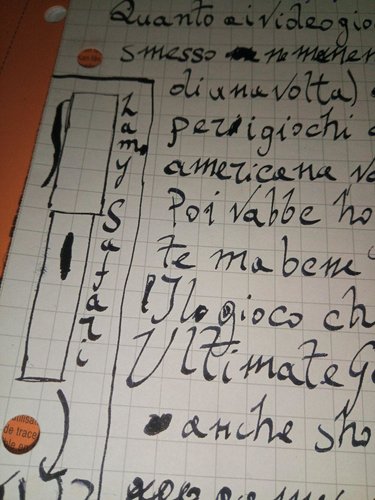 Quanto ai videogio
smesso
di una volta)
per i giochi
americana va
Poi vabbe ho
te ma bene
Il gioco ch
Ultimate Ga
anche sho
Lamy Safari
de trace